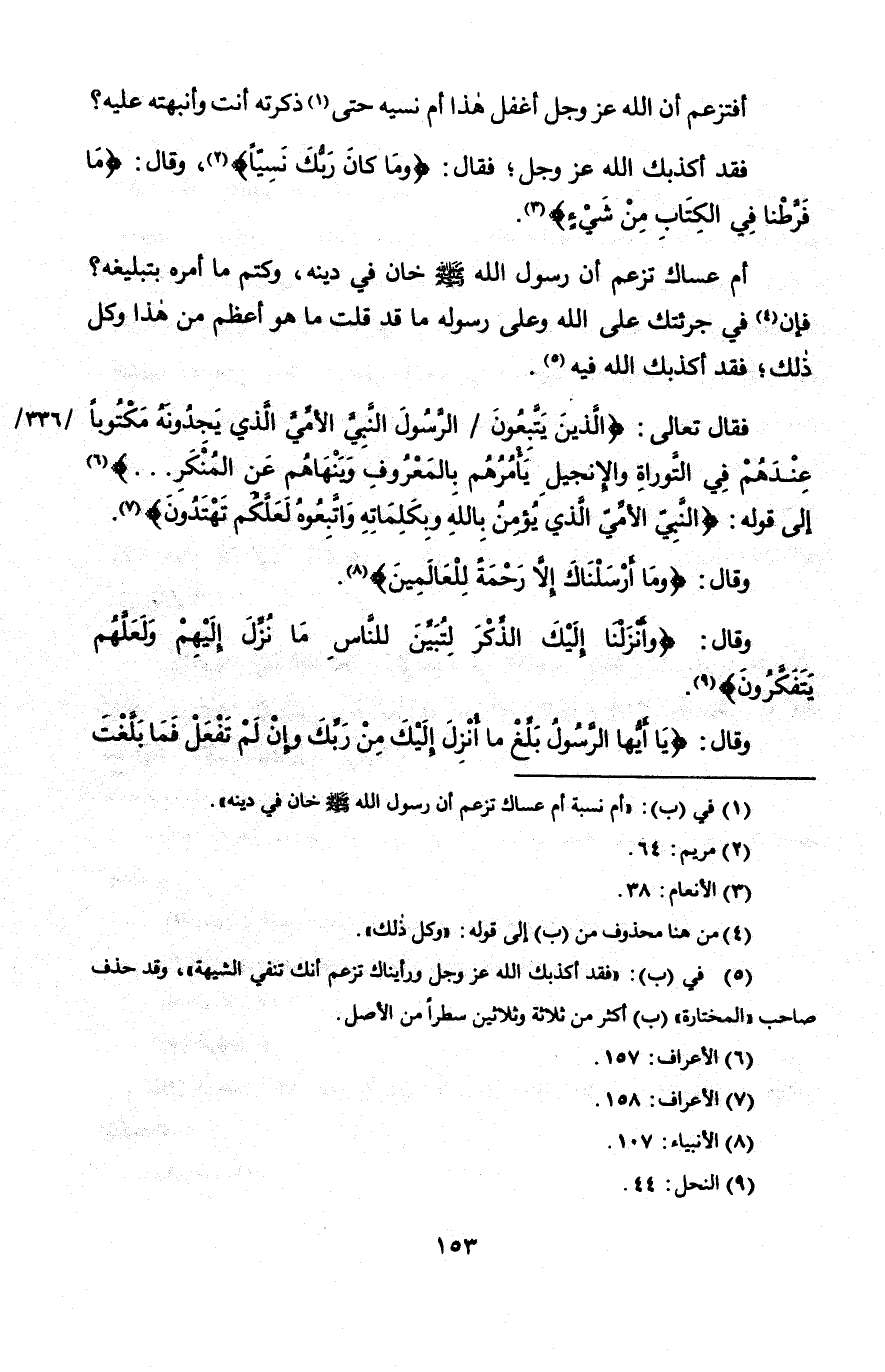 أفتزعم أن الله عز وجل أغفل هٰذا أم نسيه حتى(١) ذكرته أنت وأنبهته عليه؟
فقد أكذبك الله عز وجل؛ فقال: ﴿ومَا كانَ رَبُّكَ نَسِيّاً﴾(٢)، وقال: ﴿مَا
فَرَّطْنا فِي الكِتَابِ مِنْ شَيْءٍ﴾(٣).
أم عساك تزعم أن رسول الله ﷺ خان في دينه، وكتم ما أمره بتبليغه؟
فإن(٤) في جرئتك على الله وعلى رسوله ما قد قلت ما هو أعظم من هٰذا وكل
ذٰلك؛ فقد أكذبك الله فيه(٥) .
فقال تعالى: ﴿الَّذينَ يَتَّبِعُونَ / الرَّسُولَ النَّبِيَّ الأمِّيَّ الَّذي يَجِدُونَهُ مَكْتُوباً /٣٣٦/
عِنْدَهُمْ فِي التَّوراةِ والإنجيلِ يَأْمُرُهُم بِالمَعْرُوفِ وَيَنْهَاهُم عَنِ المُنْكَرِ. . .﴾(٦)
إلى قوله: ﴿النَّبِيِّ الأمِّيِّ الَّذي يُؤمِنُ بِاللهِ وبِكَلِمَاتِهِ وَاتَّبِعُوهُ لَعَلَّكُم تَهْتَدُونَ﴾(٧).
وقال: ﴿ومَا أَرْسَلْنَاكَ إلَّا رَحْمَةً لِلْعَالَمِينَ﴾(٨).
وقال: ﴿وأَنْزَلْنَا إلَيْكَ الذِّكْرَ لِتُبَيِّنَ للنَّاسِ مَا نُزِّلَ إلَيْهِمْ وَلَعَلَّهُم
يَتَفَكَّرُونَ﴾(٩).
وقال: ﴿يَا أَيُّها الرَّسُولُ بَلِّغْ ما أُنْزِلَ إلَيْكَ مِنْ رَبِّكَ وإنْ لَمْ تَفْعَلْ فَمَا بَلَّغْتَ
(١) في (ب): «أم نسبة أم عساك تزعم أن رسول الله ﷺ خان في دينه».
(٢) مريم: ٦٤.
(٣) الأنعام: ٣٨.
(٤) من هنا محذوف من (ب) إلى قوله: «وكل ذٰلك».
(٥) في (ب): «فقد أكذبك الله عز وجل ورأيناك تزعم أنك تنفي الشيهة»، وقد حذف
صاحب «المختارة» (ب) أكثر من ثلاثة وثلاثين سطراً من الأصل.
(٦) الأعراف: ١٥٧.
(٧) الأعراف: ١٥٨.
(٨) الأنبياء: ١٠٧.
(٩) النحل: ٤٤.
١٥٣